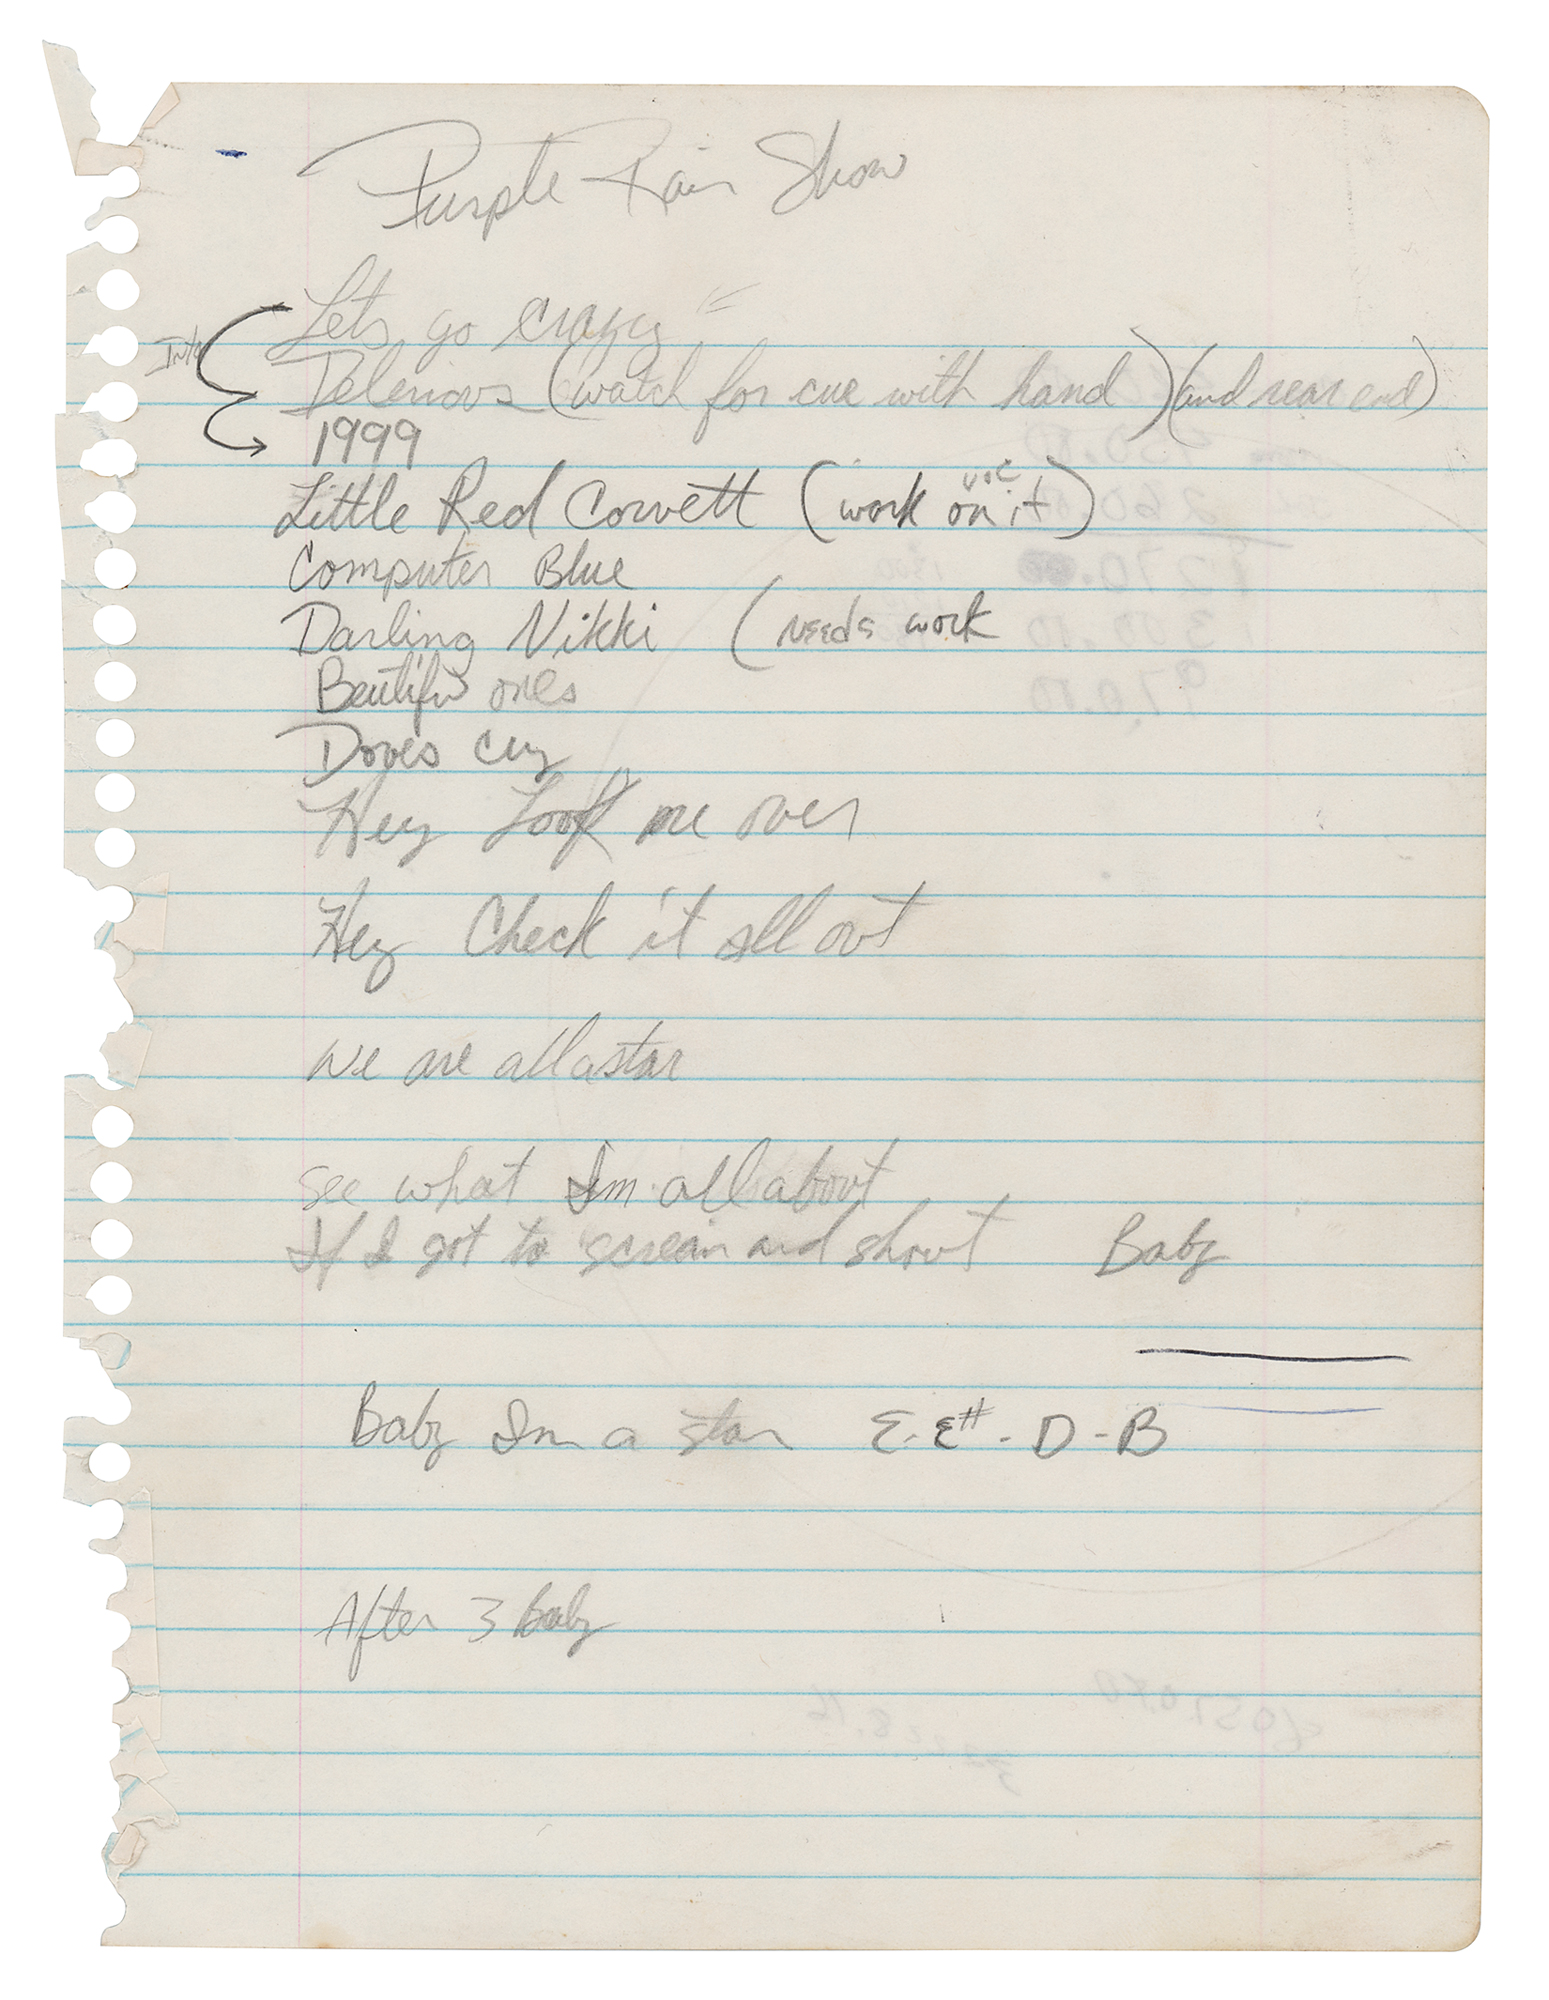 Purple Rain Show
Lets go crazy
Into
Delerious (watch for cue with hand) (and rear end)
1999
voc
Little Red Corvett (work on it)
Computer Blue
Darling Nikki (needs work
Beutiful ones
Doves cry
Hey Look me over
Hey Check it all out
we are all a star
see what Im all about
If I got to scream and shout Baby
Baby Im a star E-E# - D - B
After 3 Baby